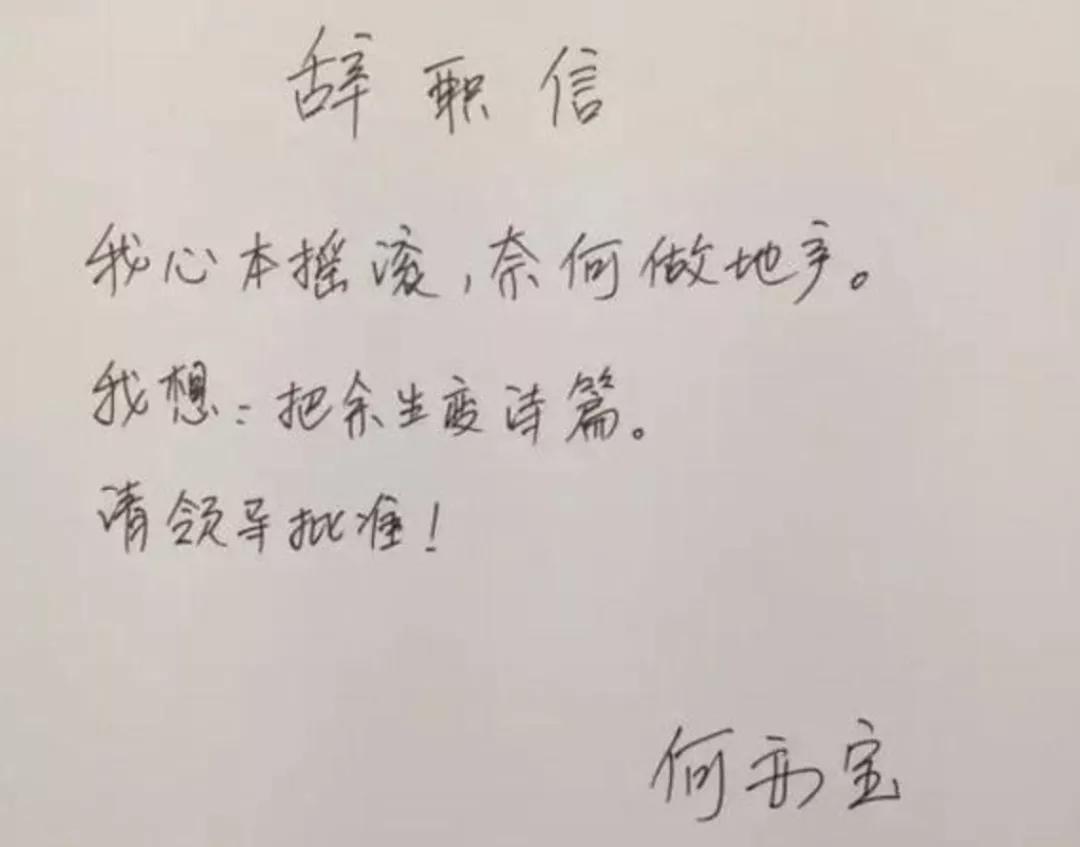 辞职信
我心本摇滚,奈何做地产。
我想:把余生变诗篇。
请领导批准!
何亦宝